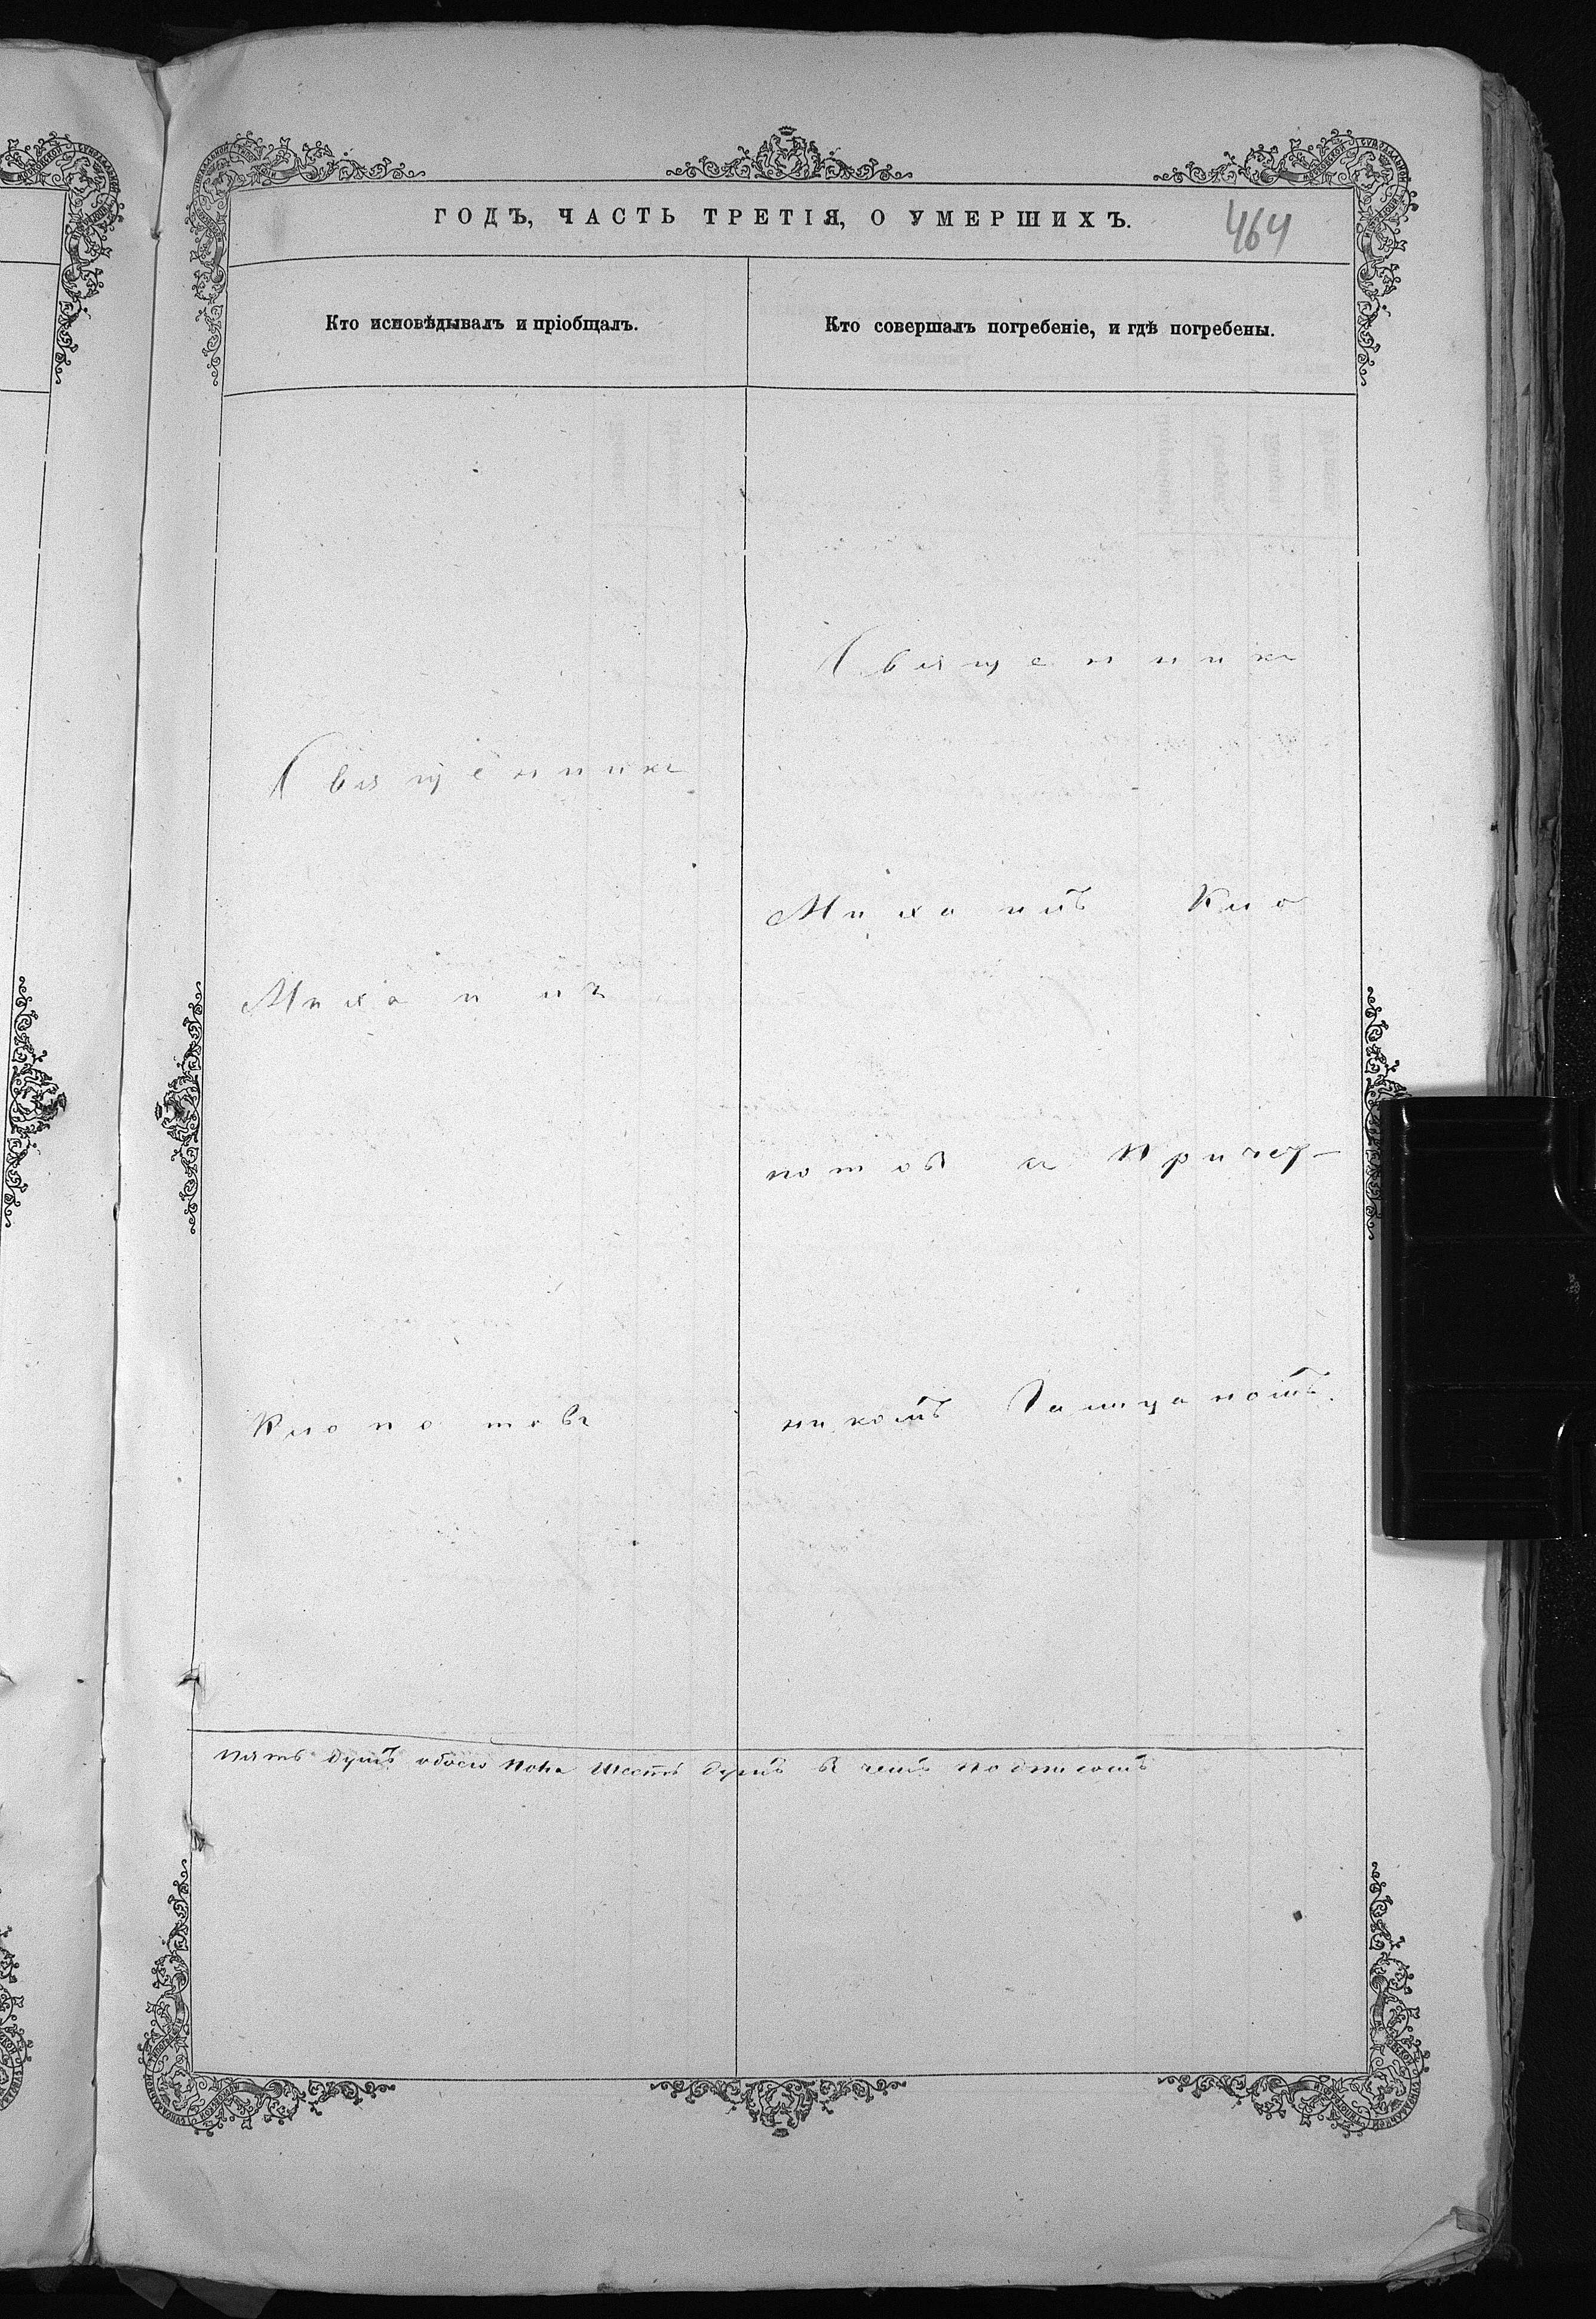 ГОДЪ, ЧАСТЬ ТРЕТІЯ, О УМЕРШИХЪ.
464
Кто исповѣдывалъ и пріобщалъ.
Кто совершалъ погребеніе, и гдѣ погребены.
Священникъ
Михаилъ
Клопотовъ
Священникъ
Михаилъ Кло
потовъ съ Причет-
никомъ
пять душъ обоего пола шесть душъ въ чемъ подписомъ